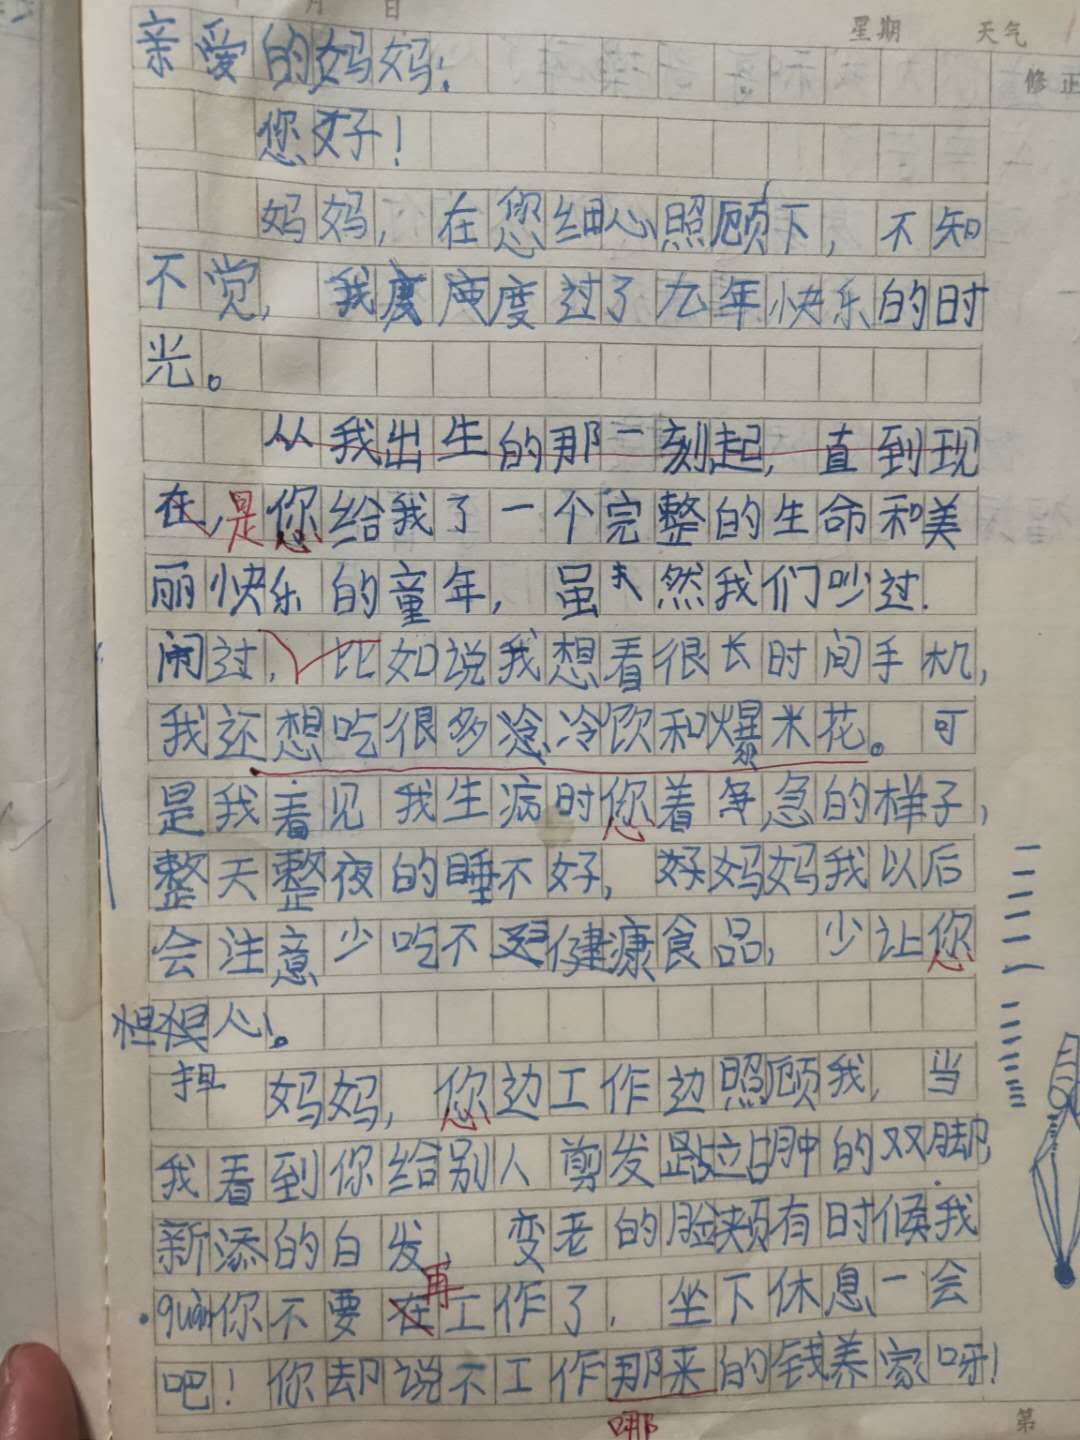 月 日 星期 天气
修正
亲爱的妈妈:
您好!
妈妈,在您细心照顾下,不知
不觉,我度过了九年快乐的时
光。
从我出生的那一刻起,直到现
在,是您给我了一个完整的生命和美
丽快乐的童年,虽然我们吵过.
闹过,比如说我想看很长时间手机,
我还想吃很多冷饮和爆米花。可
是我看见我生病时您着急的样子,
整天整夜的睡不好,好妈妈我以后
会注意少吃不健康食品,少让您
担心。
妈妈,您边工作边照顾我,当
我看到你给别人剪发站肿的双脚
新添的白发,变老的脸颊有时候我
quàn你不要再工作了,坐下休息一会
吧!你却说不工作那来的钱养家呀!
哪
第